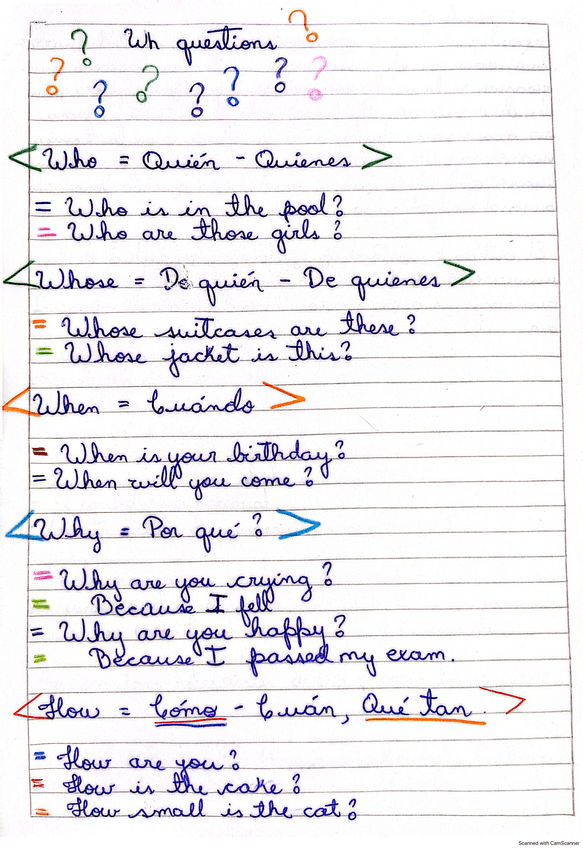 Wh questions
? ? ? ? ? ? ? ? ?
<Who = Quién - Quienes>
= Who is in the pool?
= Who are those girls?
<Whose = De quién - De quienes>
= Whose suitcases are these?
= Whose jacket is this?
<When = Cuándo>
= When is your birthday?
= When will you come?
<Why = Por qué?>
= Why are you crying?
= Because I fell
= Why are you happy?
= Because I passed my exam.
<How = Cómo - Cuán, Qué tan.>
= How are you?
= How is the cake?
= How small is the cat?
Scanned with CamScanner